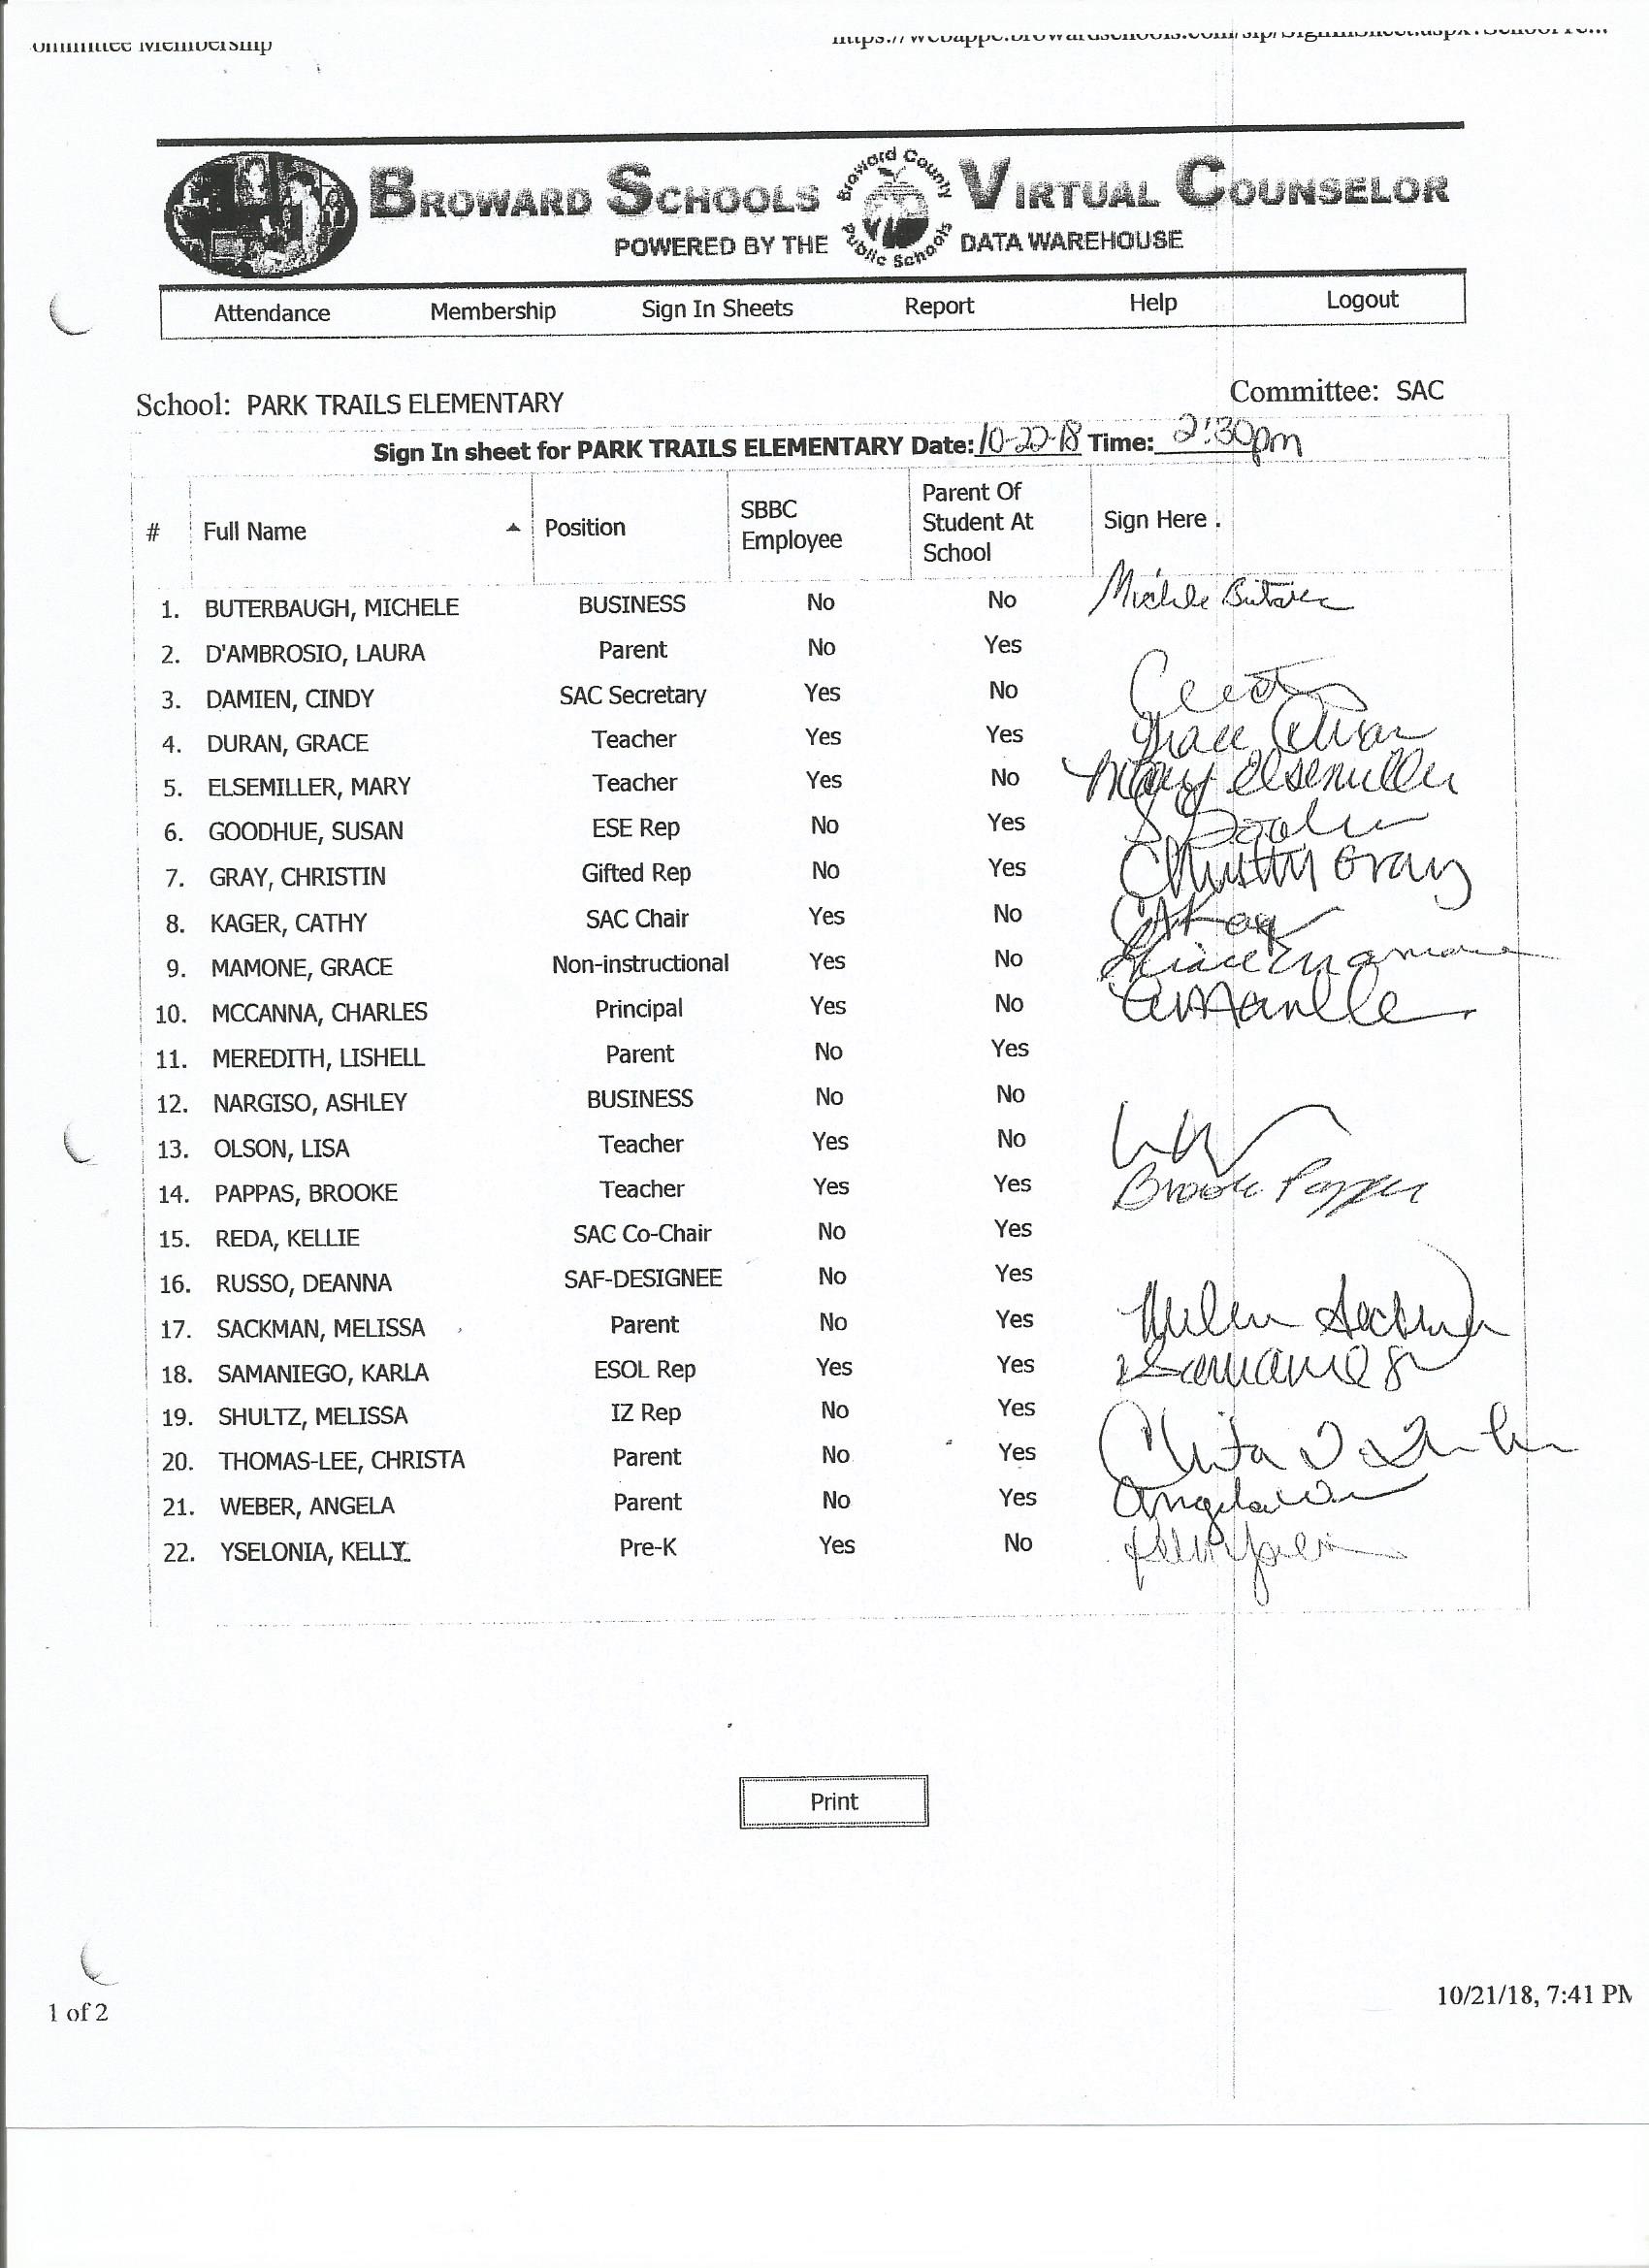 ommittee Membership
https://webappe.browardschools.com/sip/SignInSheet.aspx?SchoolYe...
BROWARD SCHOOLS Broward County Public Schools VIRTUAL COUNSELOR
POWERED BY THE DATA WAREHOUSE
Attendance Membership Sign In Sheets Report Help Logout
School: PARK TRAILS ELEMENTARY Committee: SAC
Sign In sheet for PARK TRAILS ELEMENTARY Date: 10-22-18 Time: 2:30pm
# Full Name Position SBBC Employee Parent Of Student At School Sign Here
1. BUTERBAUGH, MICHELE BUSINESS No No Michele
2. D'AMBROSIO, LAURA Parent No Yes
3. DAMIEN, CINDY SAC Secretary Yes No
4. DURAN, GRACE Teacher Yes Yes Grace Duran
5. ELSEMILLER, MARY Teacher Yes No Mary Elsemiller
6. GOODHUE, SUSAN ESE Rep No Yes
7. GRAY, CHRISTIN Gifted Rep No Yes Christy Gray
8. KAGER, CATHY SAC Chair Yes No
9. MAMONE, GRACE Non-instructional Yes No Grace Mamone
10. MCCANNA, CHARLES Principal Yes No
11. MEREDITH, LISHELL Parent No Yes
12. NARGISO, ASHLEY BUSINESS No No
13. OLSON, LISA Teacher Yes No
14. PAPPAS, BROOKE Teacher Yes Yes Brooke Pappas
15. REDA, KELLIE SAC Co-Chair No Yes
16. RUSSO, DEANNA SAF-DESIGNEE No Yes
17. SACKMAN, MELISSA Parent No Yes
18. SAMANIEGO, KARLA ESOL Rep Yes Yes
19. SHULTZ, MELISSA IZ Rep No Yes
20. THOMAS-LEE, CHRISTA Parent No Yes
21. WEBER, ANGELA Parent No Yes Angela
22. YSELONIA, KELLY Pre-K Yes No
Print
1 of 2 10/21/18, 7:41 PM